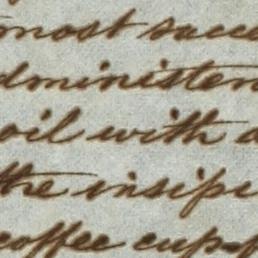 most succe
dministen
oil with a
the insipi
coffee cup-f